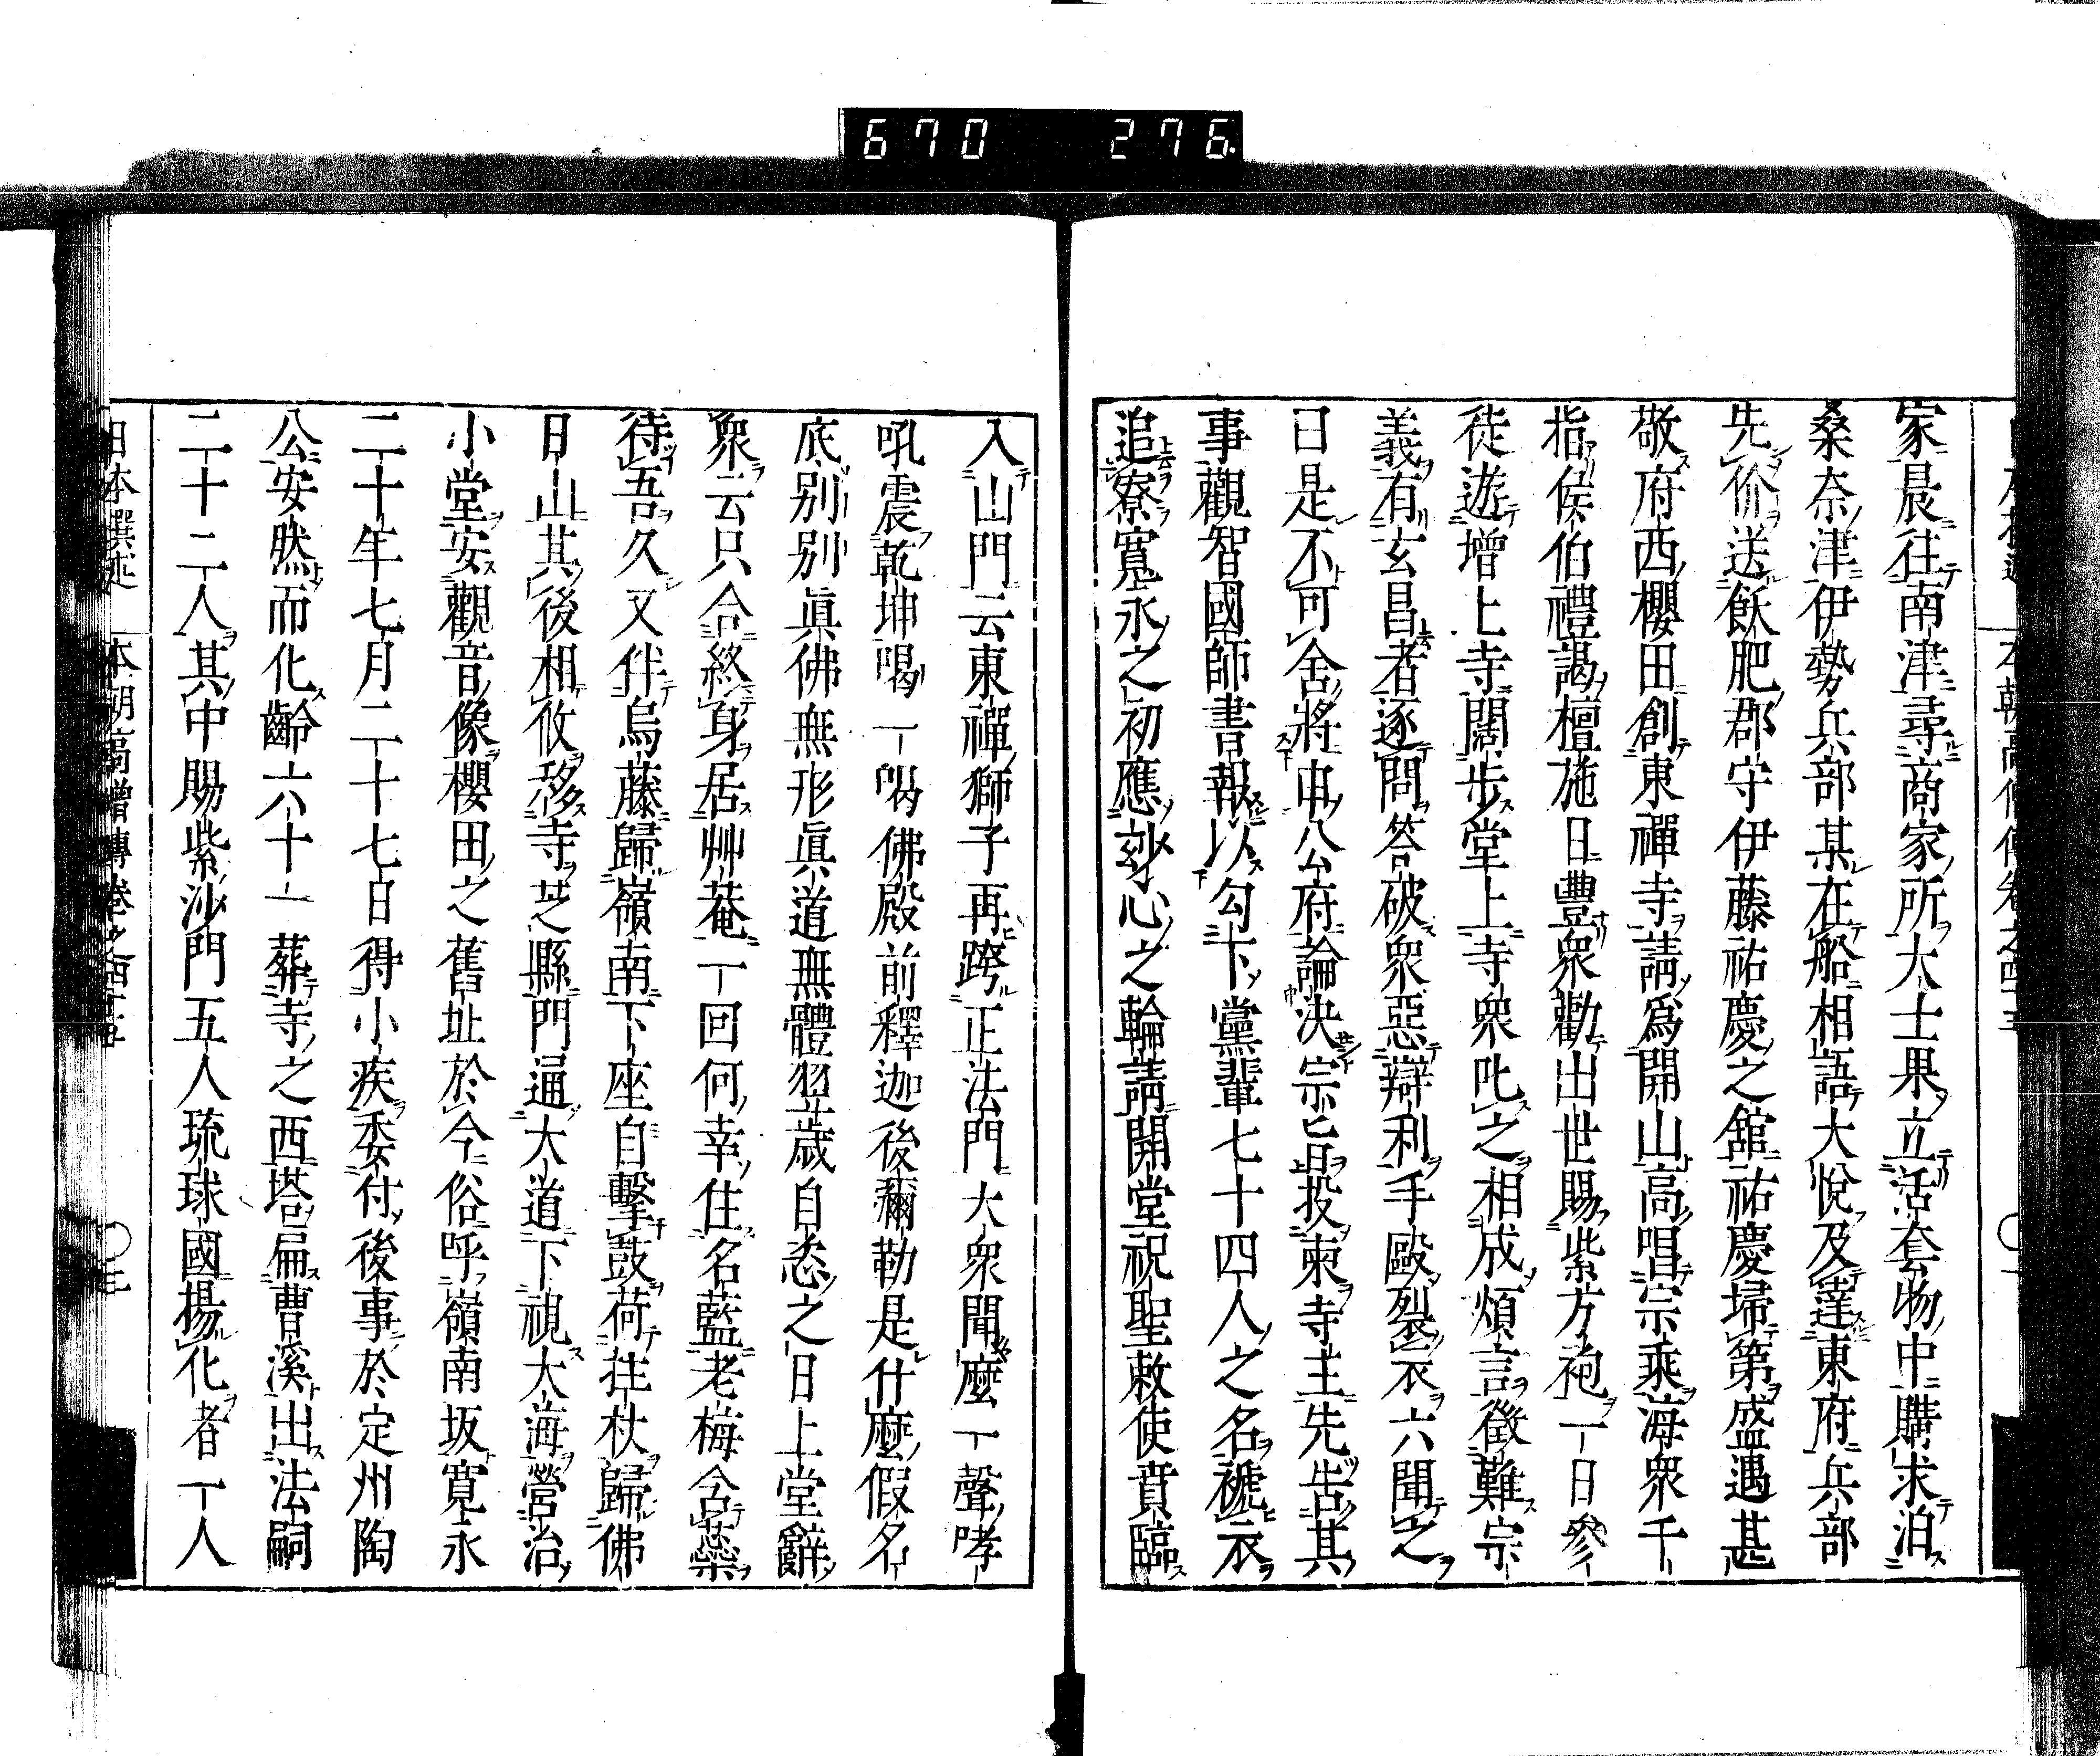 670 276
家晨往南津尋商家所大士果立活套物中購求泊
桑奈津伊勢兵部某在船相語大悅及達東府兵部
先价送飫肥郡守伊藤祐慶之舘祐慶掃第盛遇甚
敬府西櫻田創東禪寺請爲開山高唱宗乘海衆千
指侯伯禮謁檀施日豐衆勸出世賜紫方袍一日參
徒遊增上寺闊步堂上寺衆叱之相成煩言徵難宗
義有玄昌者逐問答破衆惡辯利手毆裂衣六聞之
曰是不可舍將申公府論決宗旨投柬寺主先告其
事觀智國師書報以勾下黨輩七十四人之名褫衣
追寮寬永之初應玅心之輪請開堂祝聖敕使賁臨
入山門云東禪獅子再跨正法門大衆聞麼一聲哮
吼震乾坤喝一喝佛殿前釋迦後彌勒是什麼假名
底別別眞佛無形眞道無體翌歲自恣之日上堂辭
衆云只合終身居艸菴一回何幸住名藍老梅含蘂
待吾久又伴烏藤歸嶺南下座自擊鼓荷拄杖歸佛
日山其後相攸移寺芝縣門通大道下視大海營治
小堂安觀音像櫻田之舊址於今俗呼嶺南坂寬永
二十年七月二十七日得小疾委付後事於定州陶
公安然而化齡六十一葬寺之西塔扁曹溪出法嗣
二十二人其中賜紫沙門五人琉球國揚化者一人
日本選述 本朝高僧傳卷之四十五 〇二